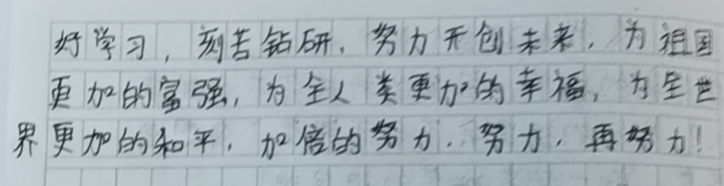 好学习，刻苦钻研，努力开创未来，为祖国
更加的富强，为全人类更加的幸福，为全世
界更加的和平，加倍的努力，努力，再努力！